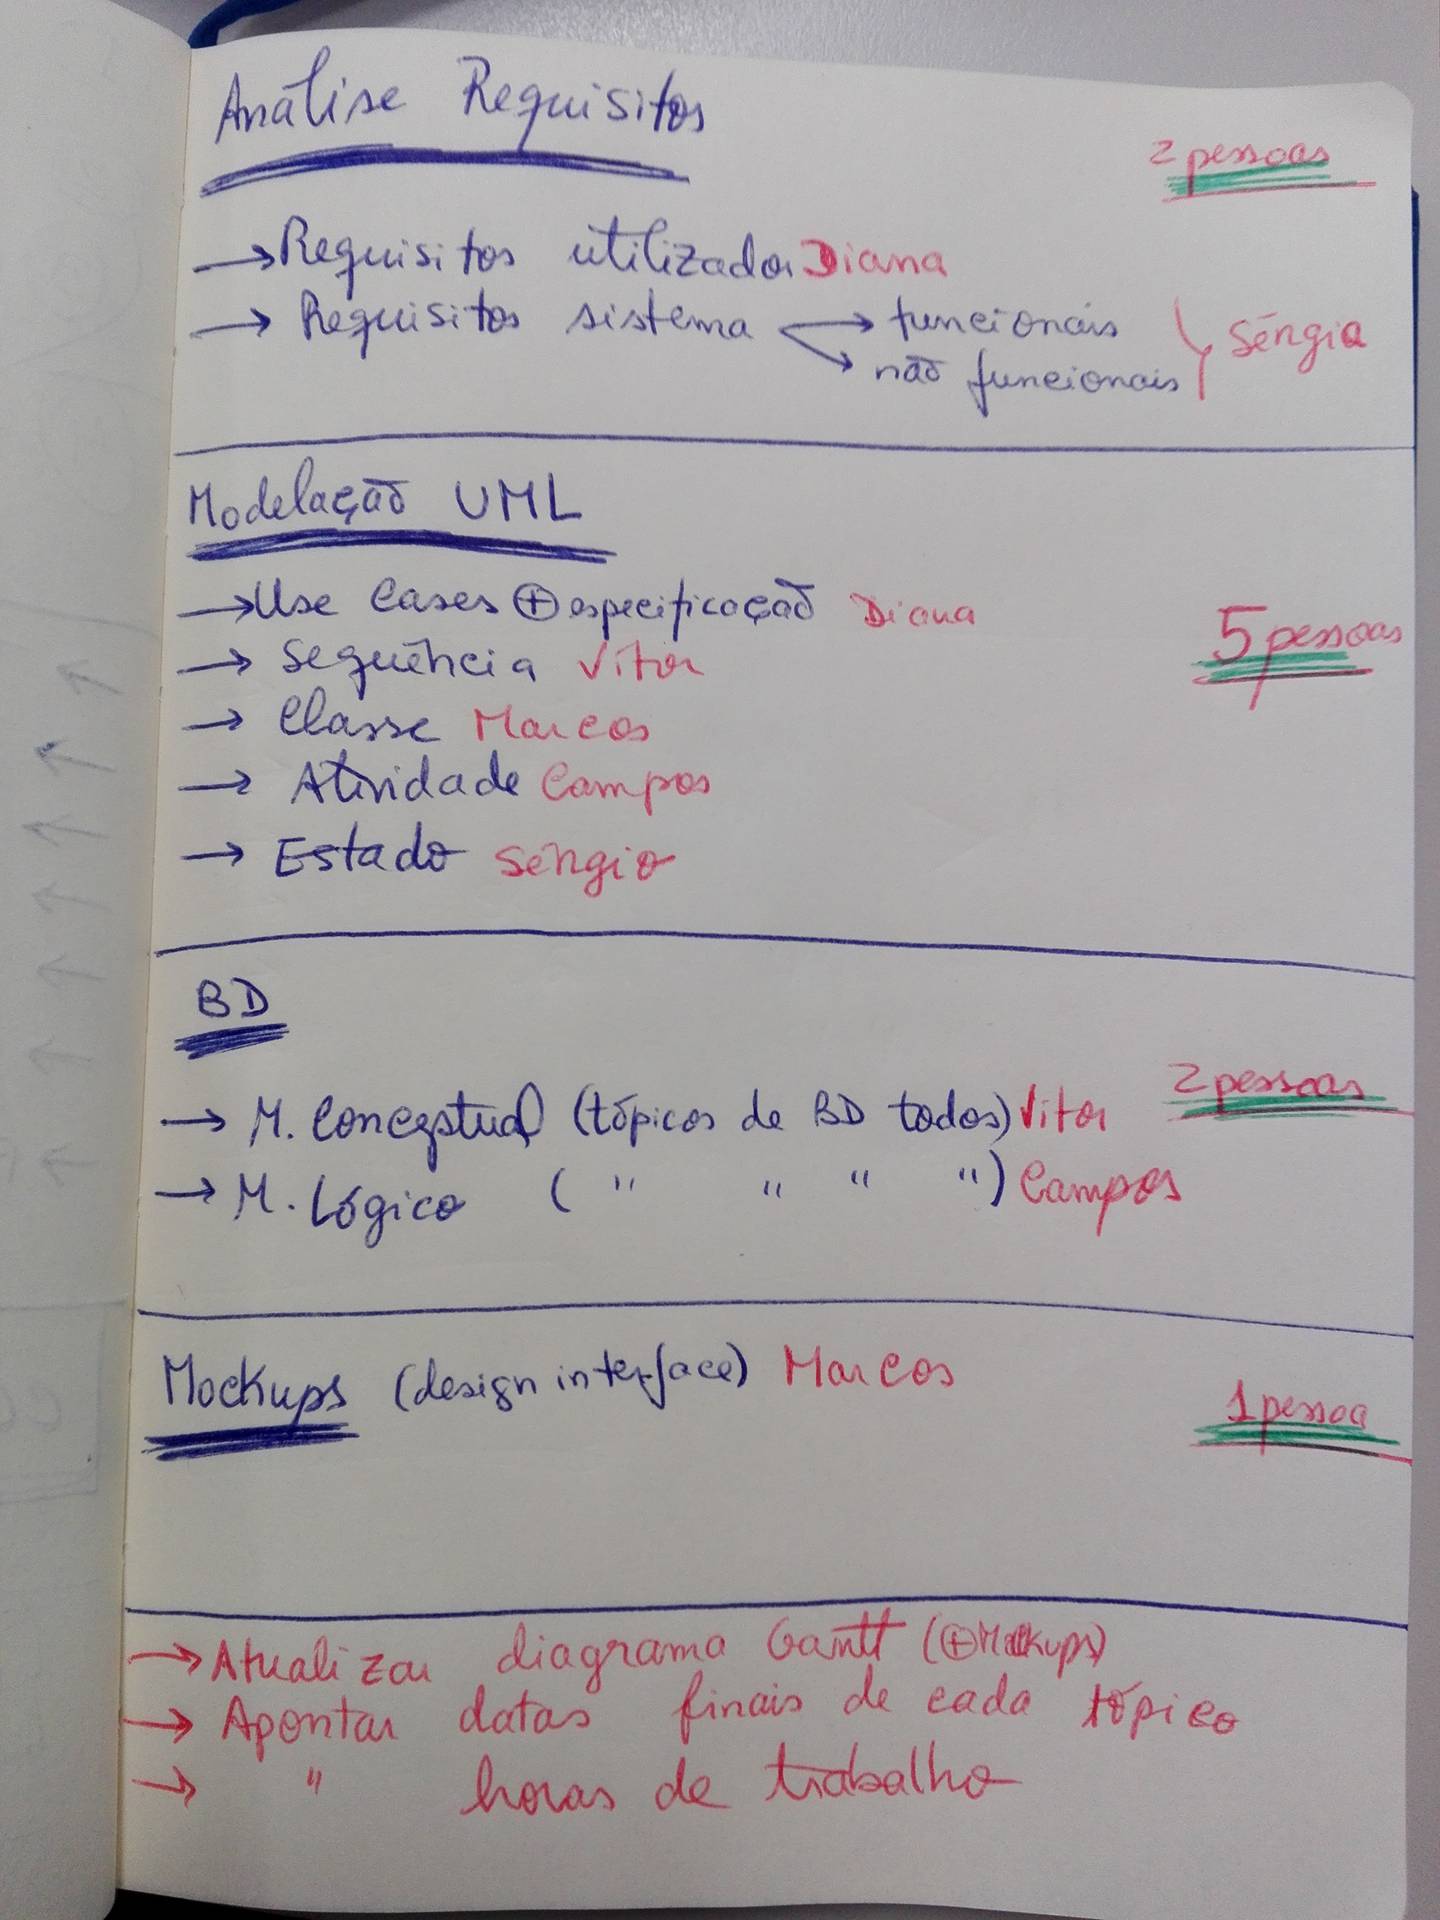 Análise Requisitos
2 pessoas
→ Requisitos utilizador Diana
→ Requisitos sistema → funcionais
→ não funcionais Sérgio
Modelação UML
→ Use Cases ⊕ especificação Diana
5 pessoas
→ Sequência Vitor
→ Classe Marcos
→ Atividade Campos
→ Estado Sérgio
BD
2 pessoas
→ M. Conceptual (tópicos de BD todos) Vitor
→ M. Lógico ( " " " ") Campos
Mockups (design interface) Marcos
1 pessoa
→ Atualizar diagrama Gantt (⊕ Mockups)
→ Apontar datas finais de cada tópico
→ " horas de trabalho